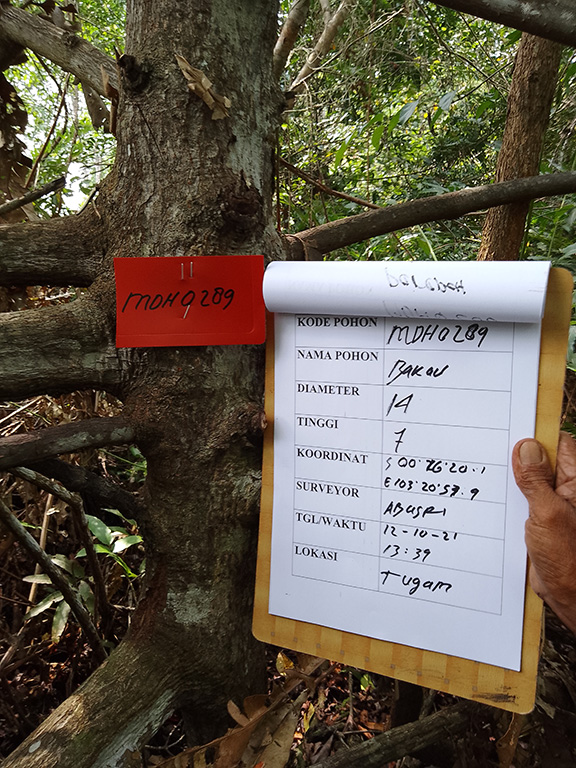 MDH0289
KODE POHON MDH0289
NAMA POHON BAKAU
DIAMETER 14
TINGGI 7
KOORDINAT S 00°26'20.1
E103°20'57.9
SURVEYOR ABUSRI
TGL/WAKTU 12-10-21
13:39
LOKASI Tugam